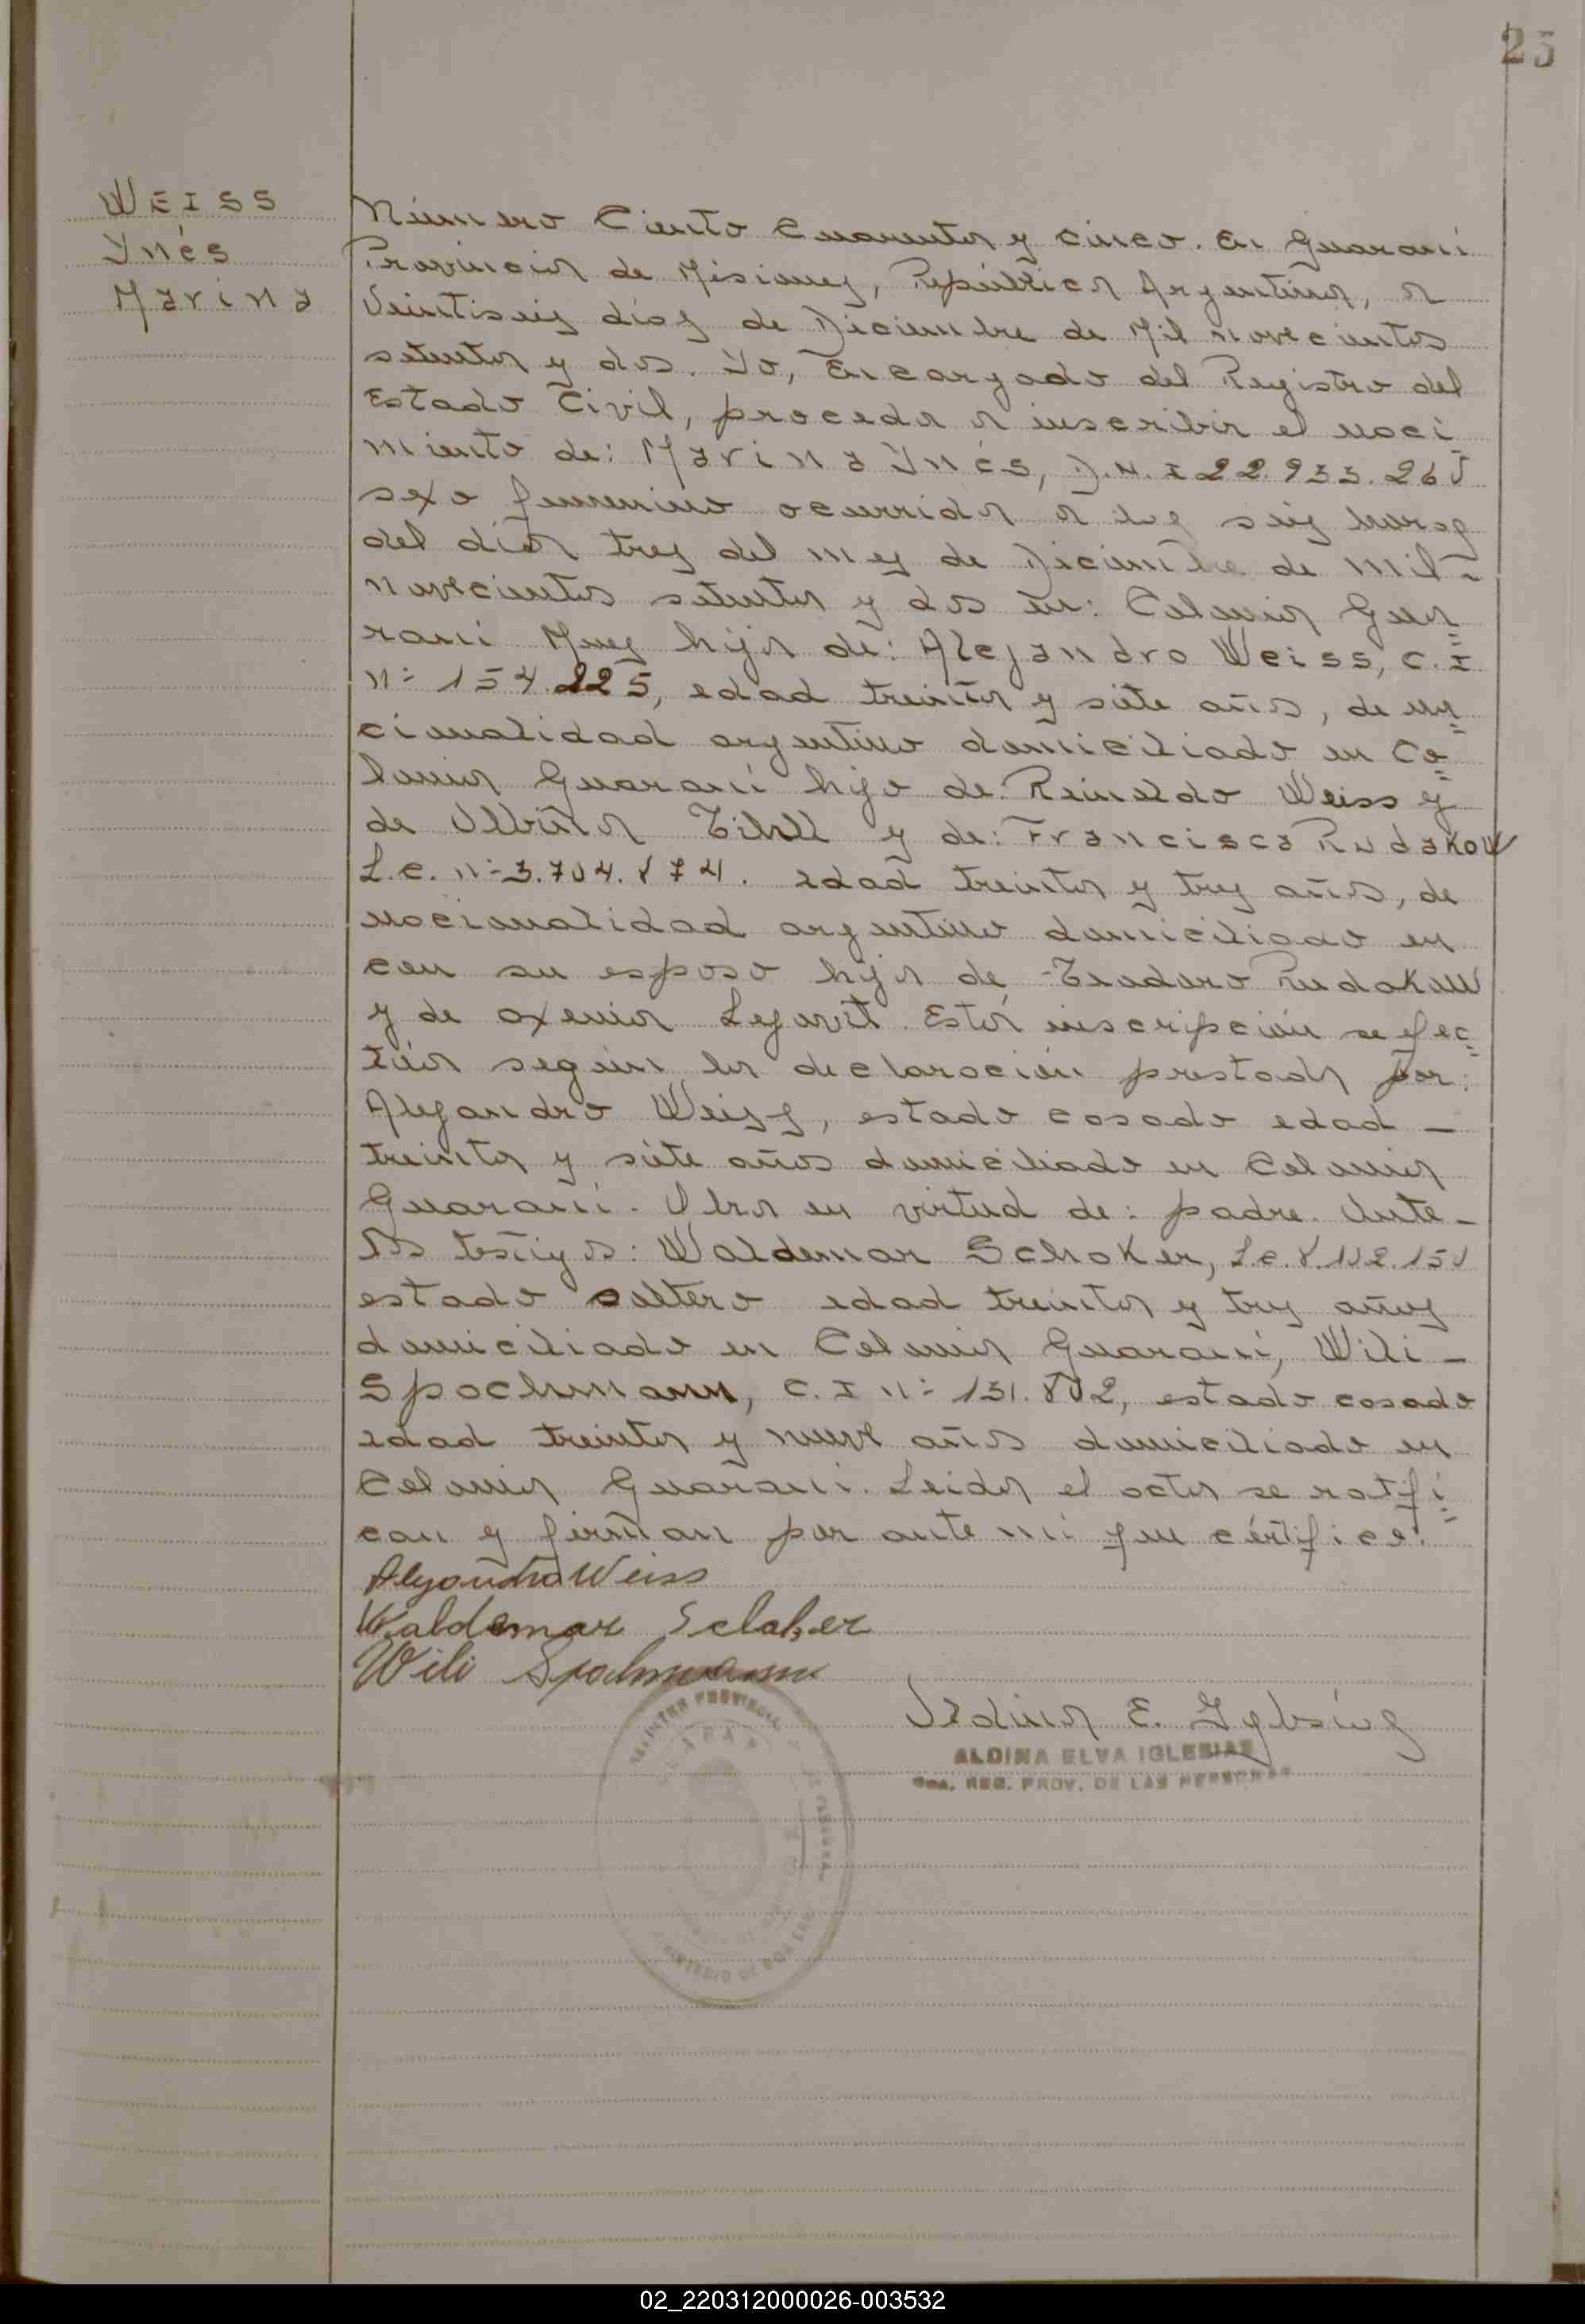 25
WEISS
Ynés
Marina
Número Ciento Cuarenta y cinco. En Guaraní
Provincia de Misiones, República Argentina, a
Veintiseis dias de Diciembre de Mil novecientos
setenta y dos. Yo, Encargado del Registro del
Estado Civil, procedo a inscribir el naci
miento de: Marina Ynés, D.N.I 22.933.260
sexo femenino ocurrido a las seis horas
del día tres del mes de Diciembre de mil -
novecientos setenta y dos en: Colonia Gua=
raní Mnes hija de: Alejandro Weiss, C.I
n= 154.225, edad treinta y siete años, de na=
cionalidad argentino domiciliado en Co=
lonia Guaraní hijo de: Reinaldo Weiss y
de Albina y de: Francisca Rudakow
L.C. n=3.704.874. edad treinta y tres años, de
nacionalidad argentino domiciliado en
con su esposo hija de Teodoro Rudakow
y de oxenia Legavit. Esta inscripción se efec=
túa según la declaración prestada por:
Alejandro Weiss, estado casado edad -
treinta y siete años domiciliado en Colonia
Guaraní. Obra en virtud de: padre. Ante -
los testigos: Waldemar Schoker, L.C. 8.102.150
estado soltero edad treinta y tres años
domiciliado en Colonia Guaraní, Wili -
Spochmann, C.I n= 131.802, estado casado
edad treinta y nueve años domiciliado en
Colonia Guaraní. Leida el acta se ratifi=
can y firman por ante mi que certifico.
Alejandro Weiss
Waldemar
Wili Spohmann
Aldina E. Iglesias
ALDINA ELVA IGLESIAS
REG. PROV. DE LAS PERSONAS
02_220312000026-003532